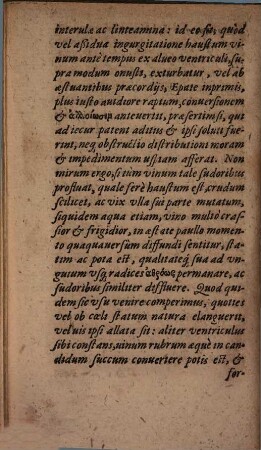 interulæ ac linteamina: id eo fit, quod
vel aßidua ingurgitatione haustum vi-
num ante tempus ex alueo ventriculi, su-
pra modum onusti, exturbatur, vel ab
æstuantibus præcordijs, Epate inprimis,
plus iusto auidiore raptum, conuersionem
& antenertit, præsertim si, qui
ad iecur patent aditus & ipsi soluti fue-
rint, neq obstructio distributioni moram
& impedimentum uspiam afferat. Non
mirum ergo, si tum vinum tale sudoribus
profluat, quale ferè haustum est, crudum
scilicet, ac vix ulla sui parte mutatum,
siquidem aqua etiam, vino multò craf-
sior & frigidior, in æstate paullo momento
quaquauersùm diffundi sentitur, sta-
tim ac pota est, qualitateq́; sua ad vn-
guium usq; radices ἀθρόως permanare, ac
sudoribus similiter diffluere. Quod qui-
dem sic vsu venire comperimus, quoties
vel ob cœli statum natura elanguerit,
vel uis ipsi allata sit: aliter ventriculus
sibi constans, uinum rubrum æquè in can-
didum succum conuertere potis est, &
for-